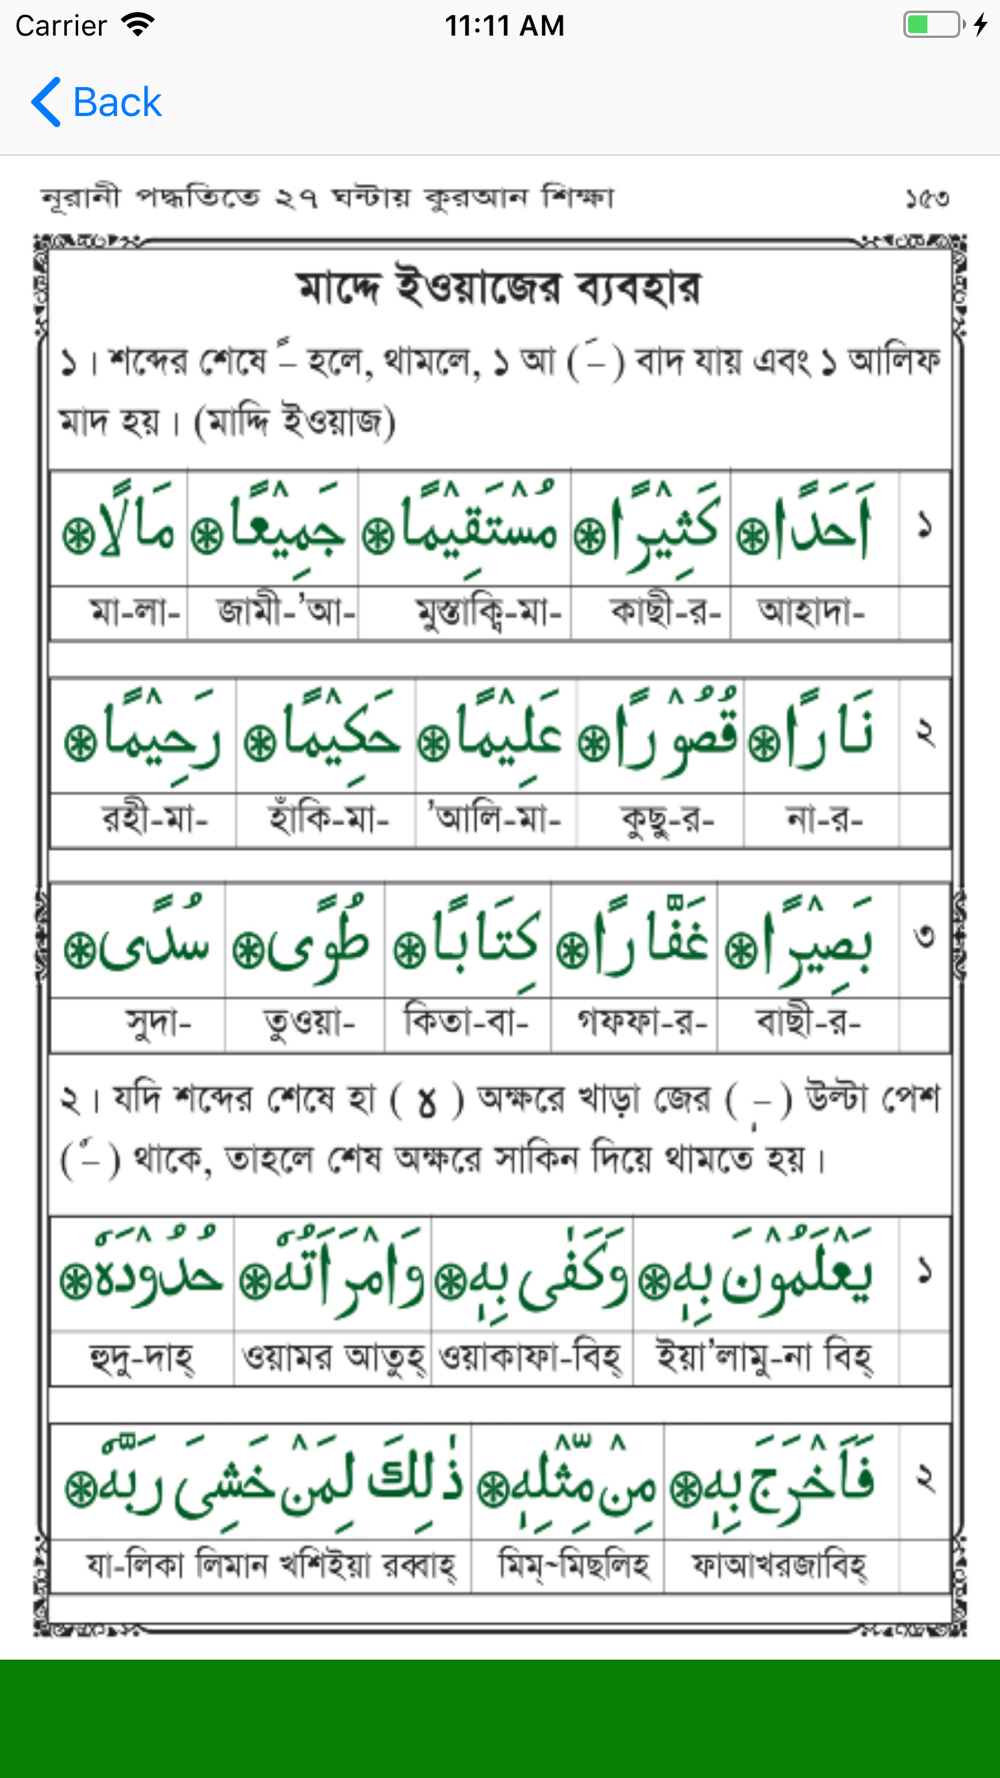 Carrier 11:11 AM
Back
নূরানী পদ্ধতিতে ২৭ ঘন্টায় কুরআন শিক্ষা ১৫৩
মাদ্দে ইওয়াজের ব্যবহার
১। শব্দের শেষে –ً হলে, থামলে, ১ আ (–َ) বাদ যায় এবং ১ আলিফ
মাদ হয়। (মাদ্দি ইওয়াজ)
اَحَدًا۞ كَثِيْرًا۞ مُسْتَقِيْمًا۞ جَمِيْعًا۞ مَالًا۞ ১
মা-লা- জামী-'আ- মুস্তাক্বি-মা- কাছী-র- আহাদা-
نَارًا۞ قُصُوْرًا۞ عَلِيْمًا۞ حَكِيْمًا۞ رَحِيْمًا۞ ২
রহী-মা- হাঁকি-মা- 'আলি-মা- কুছু-র- না-র-
بَصِيْرًا۞ غَفَّارًا۞ كِتَابًا۞ طُوًى۞ سُدًى۞ ৩
সুদা- তুওয়া- কিতা-বা- গফফা-র- বাছী-র-
২। যদি শব্দের শেষে হা ( ४ ) অক্ষরে খাড়া জের ( –ٖ ) উল্টা পেশ
(–ٗ) থাকে, তাহলে শেষ অক্ষরে সাকিন দিয়ে থামতে হয়।
يَعْلَمُوْنَ بِهٖ۞ وَكَفٰى بِهٖ۞ وَامْرَاَتُهٗ۞ حُدُوْدَهٗ۞ ১
হুদু-দাহ্ ওয়ামর আতুহ্ ওয়াকাফা-বিহ্ ইয়া'লামু-না বিহ্
فَاَخْرَجَ بِهٖ۞ مِنْ مِّثْلِهٖ۞ ذٰلِكَ لِمَنْ خَشِىَ رَبَّهٗ۞ ২
যা-লিকা লিমান খশিইয়া রব্বাহ্ মিম্~মিছলিহ ফাআখরজাবিহ্